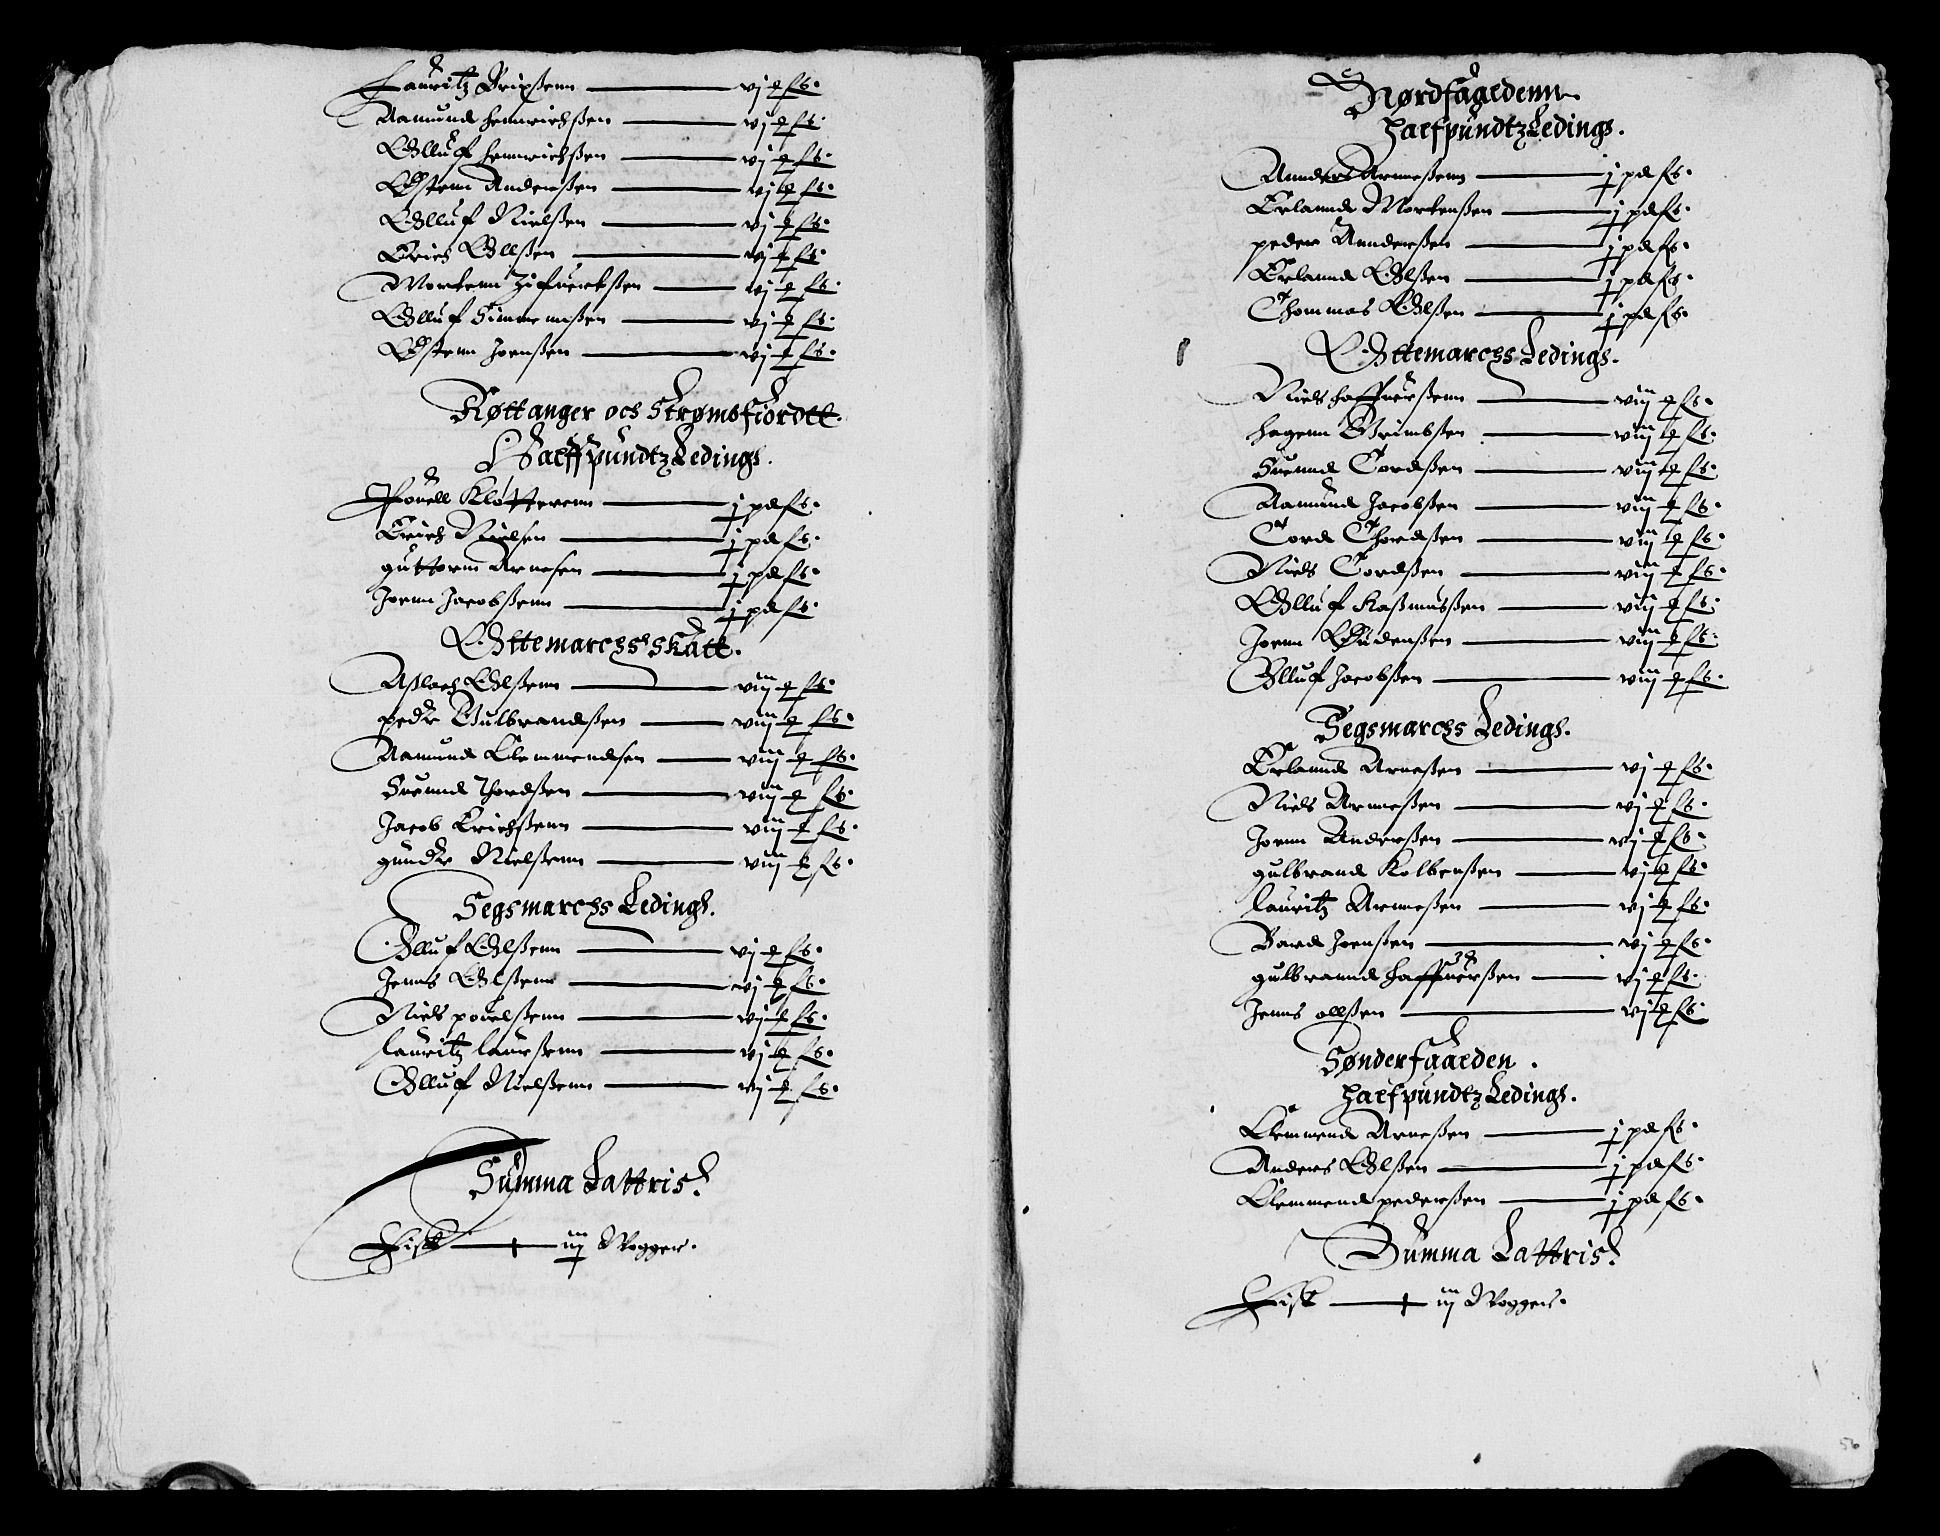 Lauritz Gripßenn — vj ℔ fs.
Aamund Hennrichßen — vj ℔ fs.
Olluf Hennrichßen — vj ℔ fs.
Østenn Anderßen — vj ℔ fs.
Olluf Nielßen — vj ℔ fs.
Erich Ollßen — vj ℔ fs.
Mortenn Zifuertßen — vj ℔ fs.
Olluf Simmenßen — vj ℔ fs.
Østenn Joenßen — vj ℔ fs.
Røttanger och Strømsfiordt.
Halfpundtz Ledings.
Pouell — j pd fs.
Erich Nielsen — j pd fs.
guttorm Arnesen — j pd fs.
Joenn Jacobßenn — j pd fs.
Ottemarchs Skatt.
Aßlach Olßenn — viij ℔ fs.
peder Gulbrandßen — viij ℔ fs.
Aamund Clemmendsen — viij ℔ fs.
Suennd Thordßen — viij ℔ fs.
Jacob Erichßenn — viij ℔ fs.
gunder Nielßenn — viij ℔ fs.
Segsmarchs Ledings.
Olluf Olßenn — vj ℔ fs.
Jenns Olßenn — vj ℔ fs.
Niels pouelßenn — vj ℔ fs.
lauritz laurßenn — vj ℔ fs.
Olluf Nielßenn — vj ℔ fs.
Summa Lattris.
Fisk — iij Wogger.
Nordfaaldenn
Halfpundtz Ledings.
Annders Arnneßenn — j pd fs.
Erlannd Mortenßen — j pd fs.
peder Annderßen — j pd fs.
Erlannd Olßen — j pd fs.
Thommas Olßen — j pd fs.
Ottemarchs Ledings.
Niels Haffuerßenn — viij ℔ fs.
Hagenn Grimbßen — viij ℔ fs.
Suennd Tordßen — viij ℔ fs.
Aamund Jacobßen — viij ℔ fs.
Tord Thordßen — viij ℔ fs.
Niels Tordßen — viij ℔ fs.
Olluf Raßmusßen — viij ℔ fs.
Joenn Oudenßen — viij ℔ fs.
Olluf Jacobßen — viij ℔ fs.
Segsmarchs Ledings.
Erlannd Arneßen — vj ℔ fs.
Niels Arnneßen — vj ℔ fs.
Joenn Anderßen — vj ℔ fs.
gulbrand Kolbenßen — vj ℔ fs.
lauritz Arnneßen — vj ℔ fs.
Bard Joenßen — vj ℔ fs.
gulbrannd Haffuerßen — vj ℔ fs.
Jenns ollßen — vj ℔ fs.
Sønderfaalden.
Halfpundtz Ledings.
Clemmend Arneßen — j pd fs.
Anders Olßen — j pd fs.
Clemmend pederßen — j pd fs.
Summa Lattris.
Fisk — iij Wogger.
56